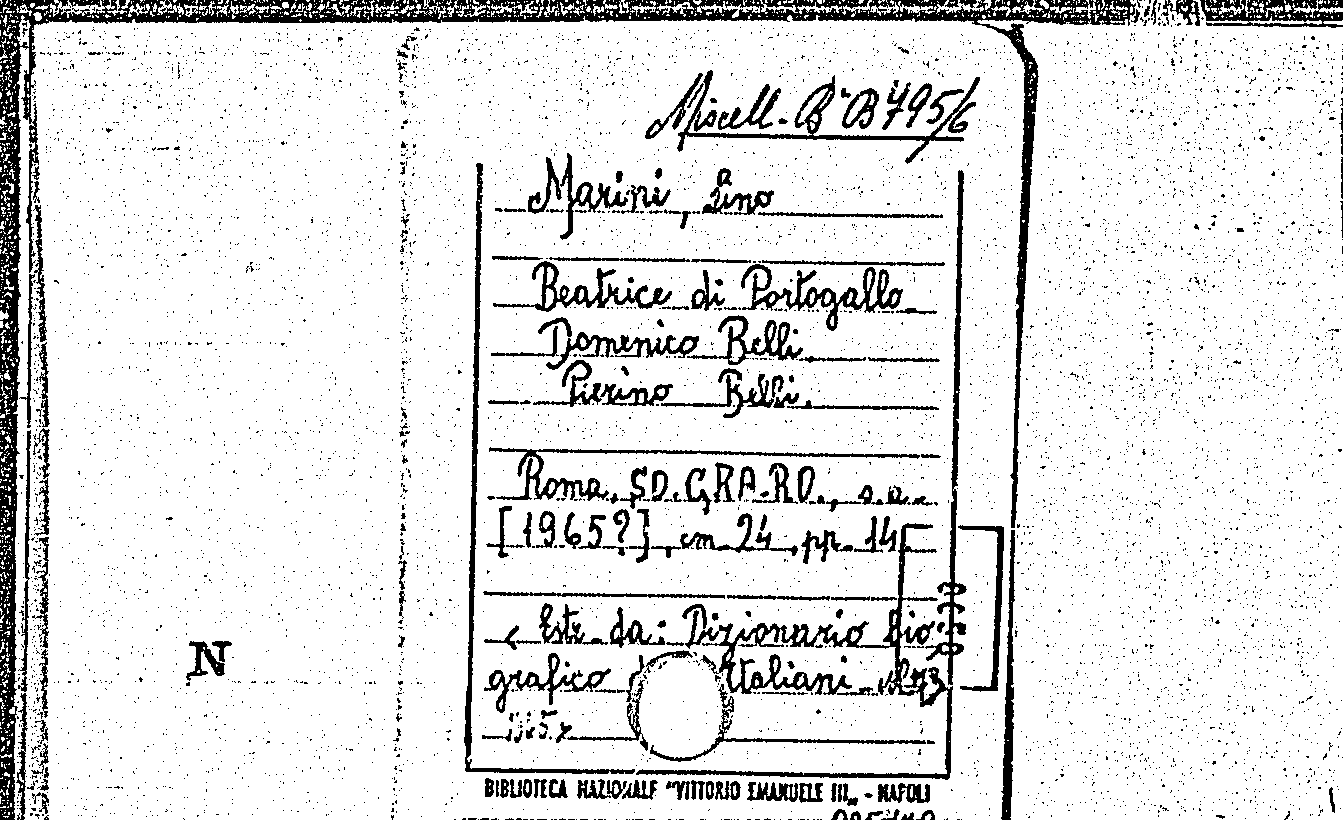 Miscell. B° B 795/6
Marini, Lino
Beatrice di Portogallo
Domenico Belli.
Pierino Belli.
Roma, SO.GRA.RO., s.a.
[1965?], cm. 24, pp. 14
< Estr. da: Dizionario bio-
grafico Italiani.
1965. >
N
BIBLIOTECA NAZIONALE "VITTORIO EMANUELE III„ - NAPOLI